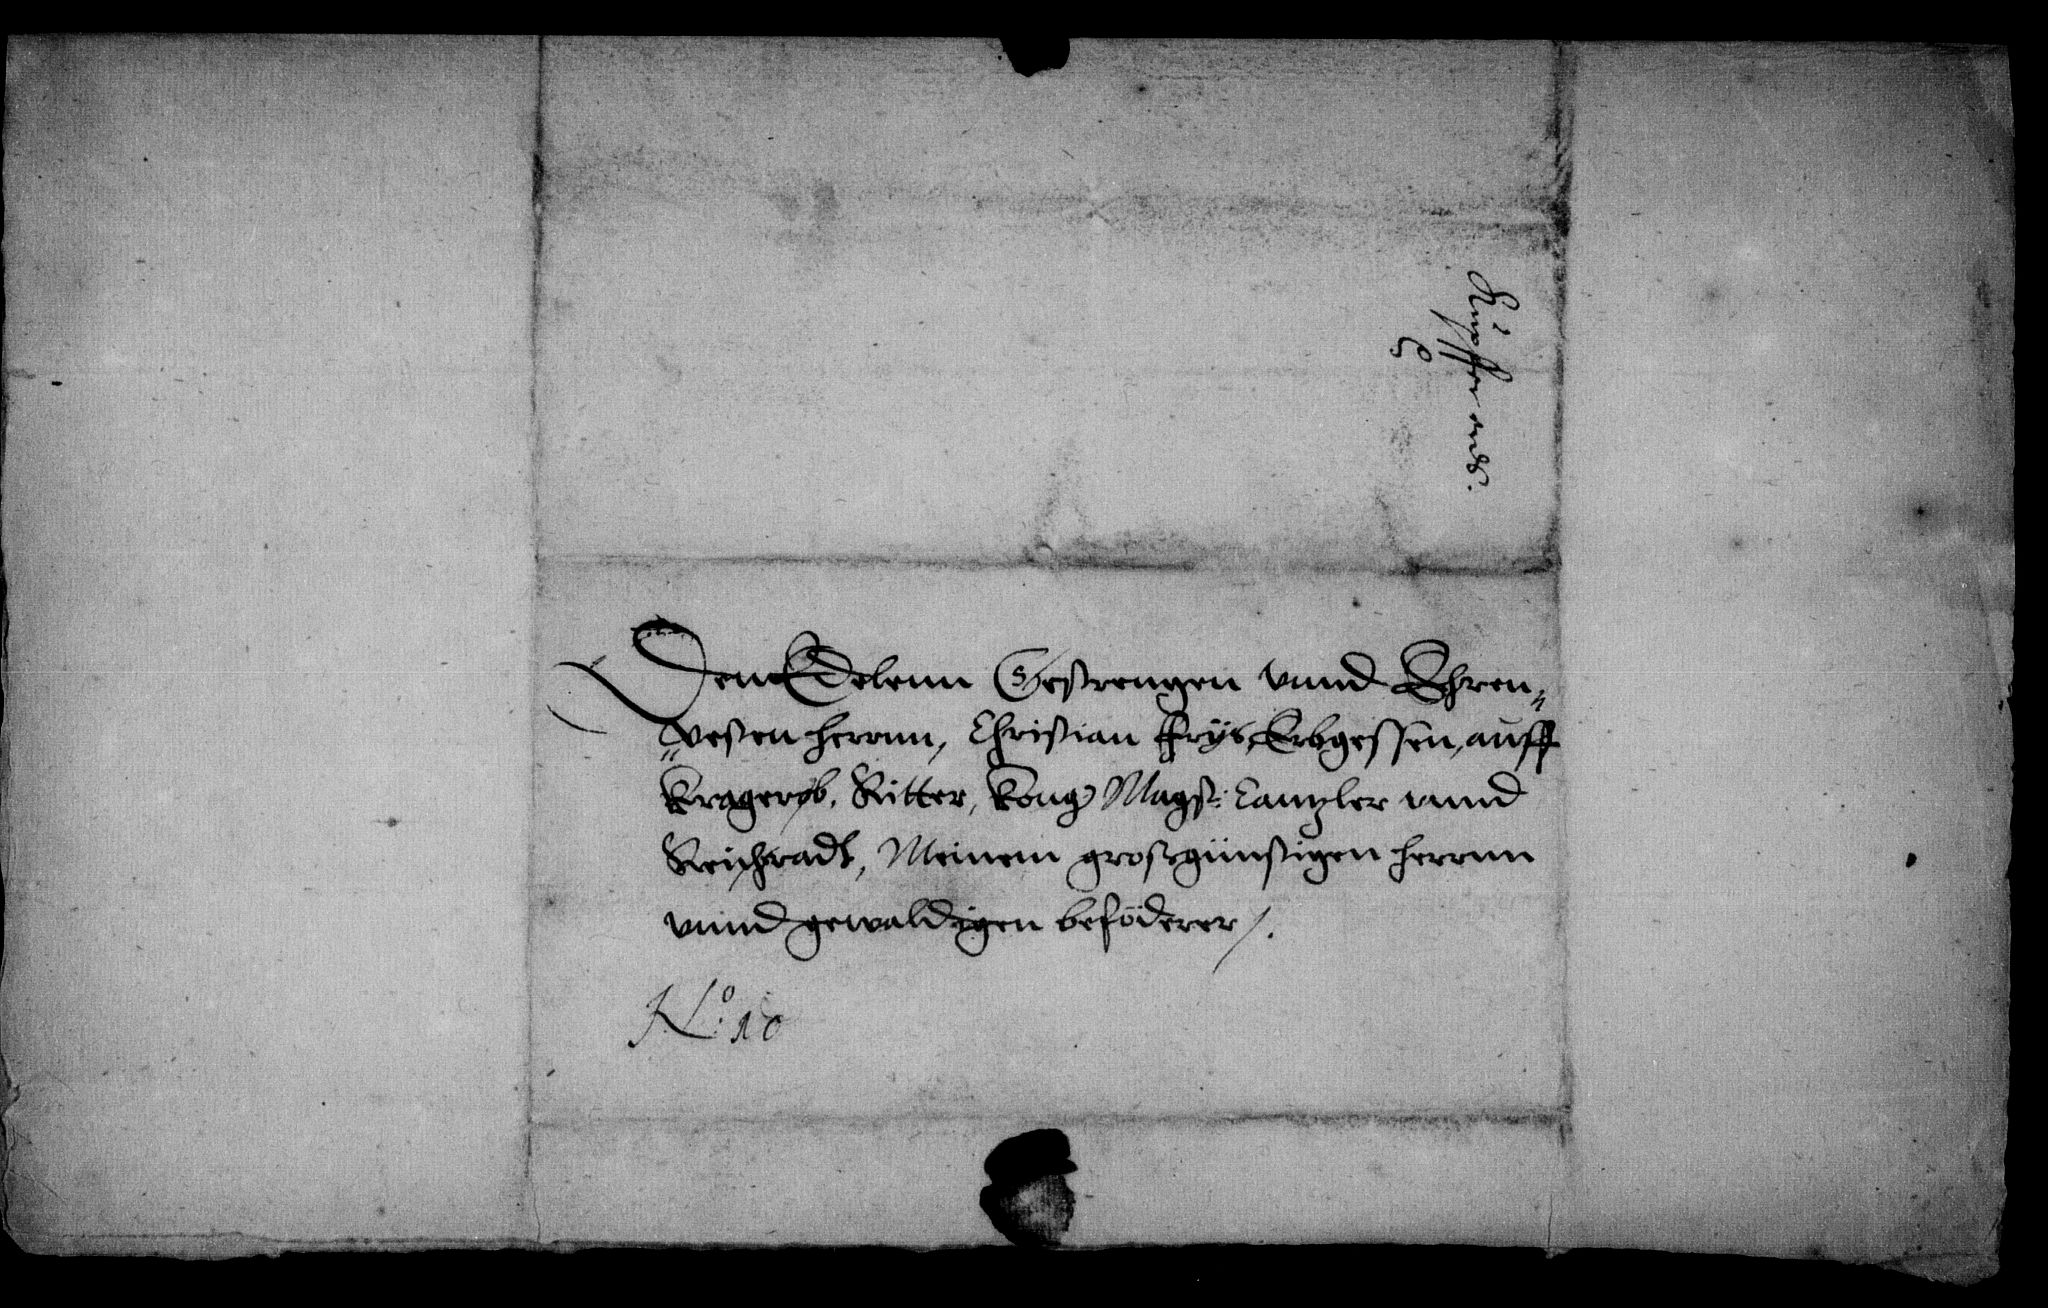 Kupffer ands.
Dem Edelenn Gestrengen vnnd Ehren„
„vesten herrnn, Christian Frÿs, Erbgessen, auff
Kragerÿb, Ritter, Kong Magst: Cantzler vnnd
Reichsradt, Meinem grosgünstigen herrnn
vnnd gewaldigen beföderer /.
No: 10